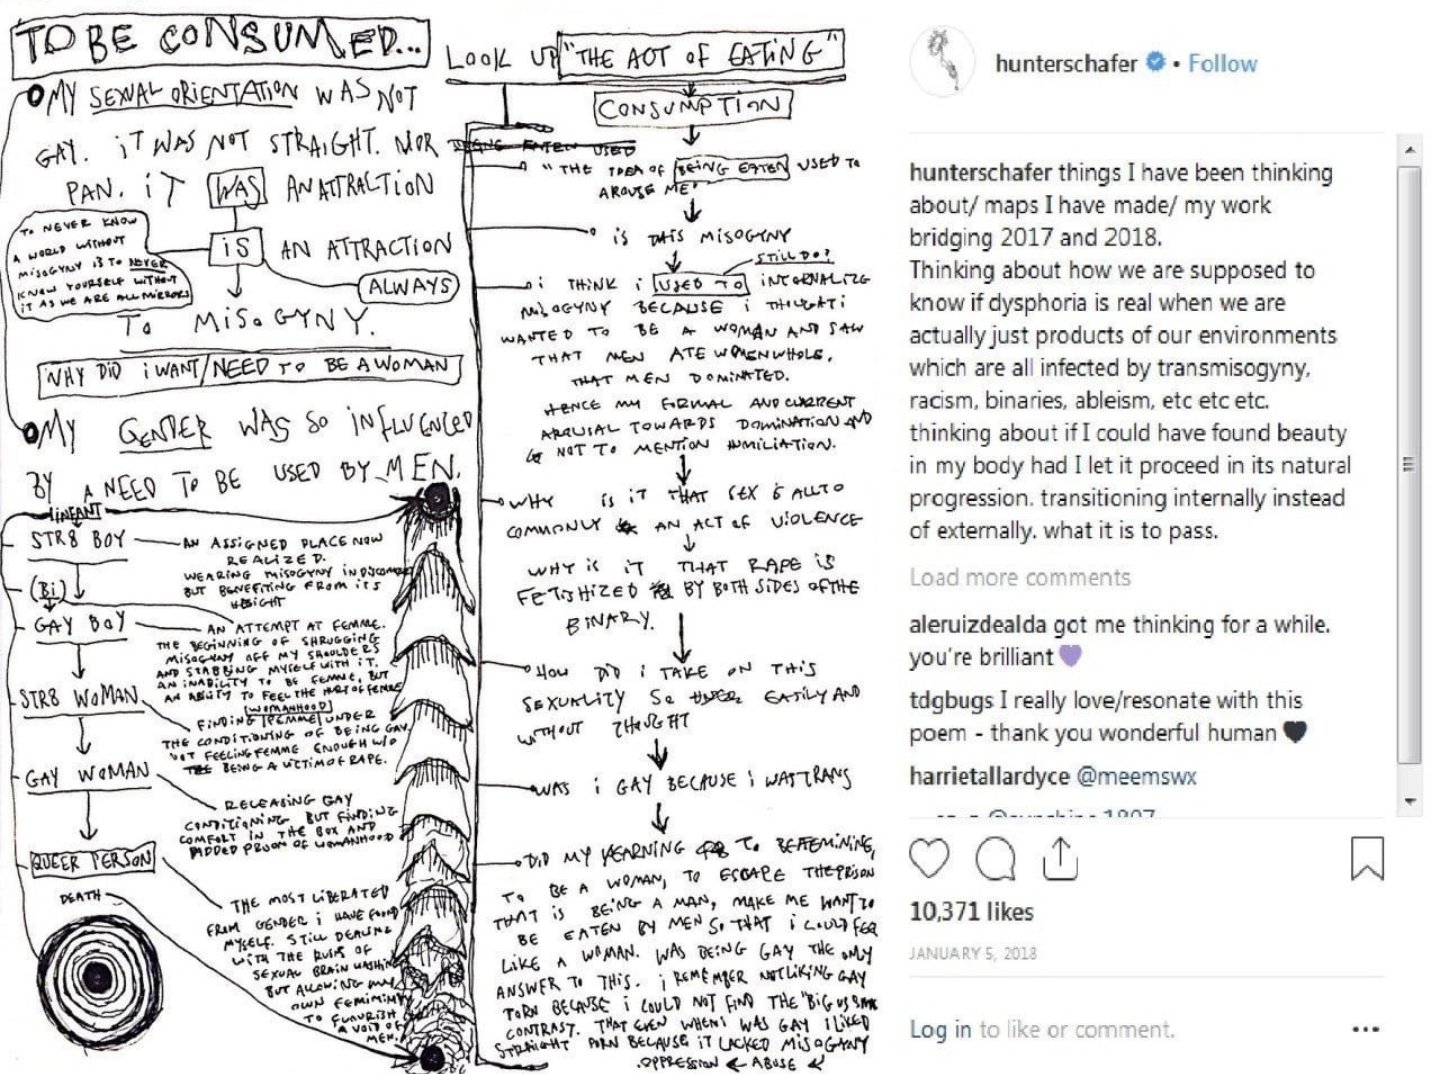 TO BE CONSUMED...
MY SEXUAL ORIENTATION WAS NOT
GAY. iT WAS NOT STRAIGHT. NOR
PAN. iT WAS AN ATTRACTION
TO NEVER KNOW
A WORLD WITHOUT
MISOGYNY IS TO NEVER
KNOW YOURSELF WITHOUT
IT AS WE ARE ALL MIRRORS
iS AN ATTRACTION
ALWAYS
TO MISOGYNY.
WHY DID i WANT/NEED TO BE A WOMAN
MY GENDER WAS SO INFLUENCED
BY A NEED TO BE USED BY MEN.
INFANT
STR8 BOY
AN ASSIGNED PLACE NOW
REALIZED.
WEARING MISOGYNY IN DISCOMFORT
BUT BENEFITING FROM ITS
WEIGHT
(Bi)
GAY BOY
AN ATTEMPT AT FEMME.
THE BEGINNING OF SHRUGGING
MISOGYNY OFF MY SHOULDERS
AND STABBING MYSELF WITH IT.
AN INABILITY TO BE FEMME, BUT
AN ABILITY TO FEEL THE HURT OF FEMME
STR8 WOMAN
[WOMANHOOD]
FINDING [FEMME] UNDER
THE CONDITIONING OF BEING GAY.
NOT FEELING FEMME ENOUGH W/O
THE BEING A VICTIM OF RAPE.
GAY WOMAN
RELEASING GAY
CONDITIONING BUT FINDING
COMFORT IN THE BOX AND
PADDED PRISON OF WOMANHOOD
QUEER PERSON
THE MOST LIBERATED
FROM GENDER i HAVE FOUND
MYSELF. STILL DEALING
WITH THE RUINS OF
SEXUAL BRAIN WASHING
BUT ALLOWING MY
OWN FEMININITY
TO FLOURISH
A VOID OF
MEN.
DEATH
LOOK UP "THE ACT OF EATING"
CONSUMPTION
BEING EATEN USED
"THE IDEA OF BEING EATEN USED TO
AROUSE ME"
iS THIS MISOGYNY
STILL DO?
i THINK i USED TO INTERNALIZE
MISOGYNY BECAUSE i THOUGHT i
WANTED TO BE A WOMAN AND SAW
THAT MEN ATE WOMEN WHOLE.
THAT MEN DOMINATED.
HENCE MY FORMAL AND CURRENT
AROUSAL TOWARDS DOMINATION AND
NOT TO MENTION HUMILIATION.
WHY IS iT THAT SEX IS ALL TO
COMMONLY AN ACT OF VIOLENCE
WHY IS iT THAT RAPE IS
FETISHIZED BY BOTH SIDES OF THE
BINARY.
HOW DID i TAKE ON THIS
SEXUALITY SO EASILY AND
WITHOUT THOUGHT
WAS i GAY BECAUSE i WAS TRANS
DID MY YEARNING TO BE FEMININE,
TO BE A WOMAN, TO ESCAPE THE PRISON
THAT IS BEING A MAN, MAKE ME WANT TO
BE EATEN BY MEN SO THAT i COULD FEEL
LIKE A WOMAN. WAS BEING GAY THE ONLY
ANSWER TO THIS. i REMEMBER NOT LIKING GAY
PORN BECAUSE i COULD NOT FIND THE "BIG VS SMALL
CONTRAST. THAT EVEN WHEN i WAS GAY i LIKED
STRAIGHT PORN BECAUSE IT LACKED MISOGYNY
OPPRESSION ← ABUSE
hunterschafer • Follow
hunterschafer things I have been thinking
about/ maps I have made/ my work
bridging 2017 and 2018.
Thinking about how we are supposed to
know if dysphoria is real when we are
actually just products of our environments
which are all infected by transmisogyny,
racism, binaries, ableism, etc etc etc.
thinking about if I could have found beauty
in my body had I let it proceed in its natural
progression. transitioning internally instead
of externally. what it is to pass.
Load more comments
aleruizdealda got me thinking for a while.
you're brilliant 💜
tdgbugs I really love/resonate with this
poem - thank you wonderful human 🖤
harrietallardyce @meemswx
10,371 likes
JANUARY 5, 2018
Log in to like or comment.